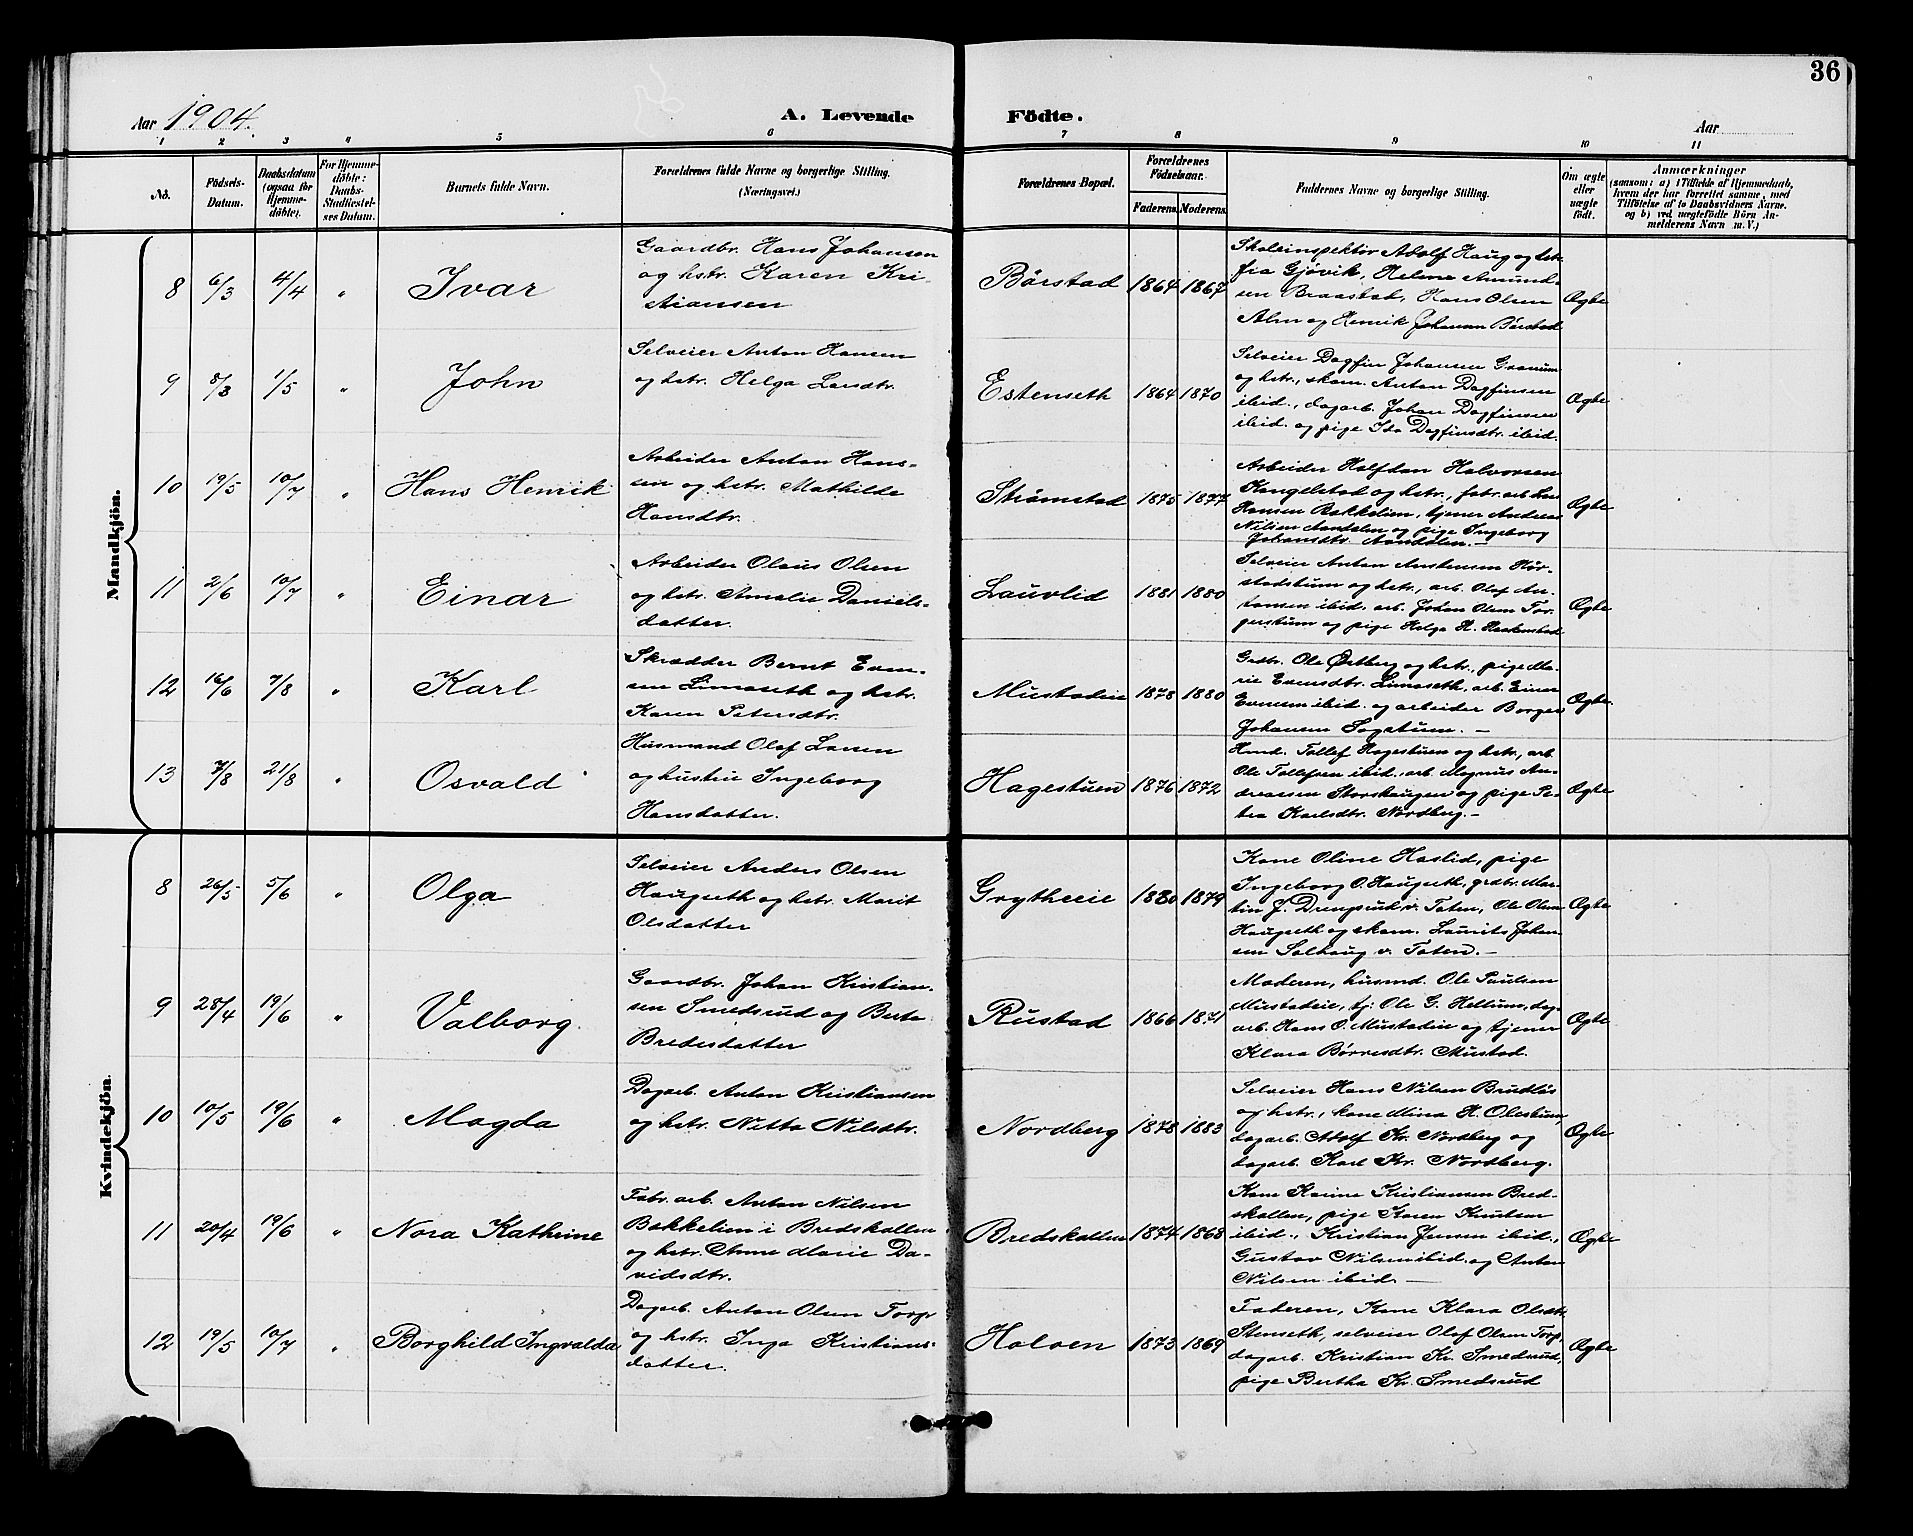 36
Aar 1904.
A. Levende Födte.
Aar
1 2 3 4 5 6 7 8 9 10 11
No.
Födsels-Datum.
Daabsdatum (ogsaa for Hjemmedöbte).
For Hjemmedöbte: Daabs-Stadfæstelses Datum.
Barnets fulde Navn.
Forældrenes fulde Navne og borgerlige Stilling. (Næringsvei.)
Forældrenes Bopæl.
Forældrenes Födselsaar.
Faderens. Moderens.
Faddernes Navne og borgerlige Stilling.
Om ægte eller uægte födt.
Anmærkninger
(saasom: a) i Tilfælde af Hjemmedaab, hvem der har forrettet samme, med Tilföielse af to Daabsvidners Navne. og b) ved uægtefödte Börn Anmelderens Navn m. V.)
Mandkjön.
8 6/3 4/4 " Ivar
Gaardbr. Hans Johansen
og hstr. Karen Kri-
stiansen
Børstad 1864 1867
Skoleinspektør Adolf Haug og hstr.
fra Gjøvik, Helene Amund-
sen Braastad, Hans Olsen
Alm og Henrik Johansen Børstad
Ægte
9 8/3 1/5 " John
Selveier Anton Hansen
og hstr. Helga Larsdtr.
Estenseth 1864 1870
Selveier Dagfin Johansen Granum
og hstr., skom. Anton Dagfinsen
ibid., dagarb. Johan Dagfinsen
ibid. og pige Ida Dagfinsdtr. ibid.
Ægte
10 19/5 10/7 " Hans Henrik
Arbeider Anton Hans-
sen og hstr. Mathilde
Hansdtr.
Strømstad 1875 1877
Arbeider Halfdan Halvorsen
Kangelstad og hstr., fabr. arb.
Hansen Bakkelien, tjener Andreas
Nilsen Aandalen og pige Ingeborg
Johansdtr. Aandalen. —
Ægte
11 2/6 10/7 " Einar
Arbeider Olaus Olsen
og hstr. Amalie Daniels-
datter.
Lauvlid 1881 1880
Selveier Anton Anstensen
og hstr., arb. Olaf An-
tonsen ibid. arb. Johan Olsen Tor-
gerstuen og pige Helga H.
Ægte
12 16/6 7/8 " Karl
Skrædder Bernt Even-
sen Limaseth og hstr.
Karen Petersdtr.
Mustadeie 1878 1880
Grdbr. Ole Østberg og hstr., pige Ma-
rie Evensdtr. Limaseth, arb. Einar
Evensen ibid. og arbeider Borger
Johansen Sogstuen. —
Ægte
13 7/8 21/8 " Osvald
Husmand Olaf Larsen
og hustru Ingeborg
Hansdatter.
Hagestuen 1876 1872
Husd. Tollef Hagestuen og hstr, arb.
Ole Tollefsen ibid., arb. Magnus An-
dreassen Storshaugen og pige Pe-
tra Karlsdtr. Nordberg. —
Ægte
Kvindekjön.
8 26/5 5/6 " Olga
Selveier Anders Olsen
Haugseth og hstr. Marit
Olsdatter
Grytheeie 1880 1879
Kone Oline Haslid, pige
Ingeborg O. Haugseth, grdbr. Mar-
tin J. Drengsrud v. Toten, Ole Olsen
Haugseth og skom. Laurits Johan-
sen Solhaug v. Toten. —
Ægte
9 28/4 19/6 " Valborg
Gaardbr. Johan Kristian-
sen Smedsrud og Berte
Bredesdatter
Rustad 1866 1871
Moderen, husmd. Ole Paulsen
Mustadeie, tj. Ole G. Hellum, dag-
arb. Hans O. Mustadeie og tjener
Klara Børresdtr. Mustad.
Ægte
10 10/5 19/6 " Magda
Dagarb. Anton Kristiansen
og hstr. Nitta Nilsdtr.
Nordberg 1878 1883
Selveier Hans Nilsen Brudlös
og hstr., kone Mina H. Olestuen,
dagarb. Adolf Kr. Nordberg og
dagarb. Karl Kr. Nordberg.
Ægte
11 20/4 19/6 " Nora Kathrine
Fabr. arb. Anton Nilsen
Bakkelien i Bredskallen
og hstr. Anne Marie Da-
vidsdtr.
Bredskallen 1874 1868
Kone Karine Kristiansen Bred-
skallen, pige Karen Knutsen
ibid., Kristian Jensen ibid.,
Gustav Nilsen ibid. og Anton
Nilsen ibid. —
Ægte
12 19/5 10/7 " Borghild Ingvalda
Dagarb. Anton Olsen Torp
og hstr. Inga Kristians-
datter.
Holven 1873 1869
Faderen, Kone Klara Olsdtr.
Stenseth, selveier Olaf Olsen Torp,
dagarb. Kristian Kr. Smedsrud,
pige Bertha Kr. Smedsrud
Ægte